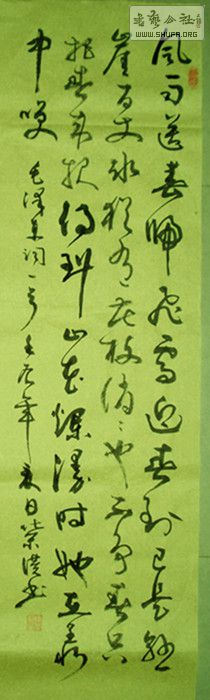 書藝公社
WWW.SHUFA.ORG
风雨送春歸飛雪迎春到已是懸
崖百丈冰猶有花枝俏々也不争春只
把春来报待到山花爛漫时她在丛
中笑 毛泽东词一首 年夏日